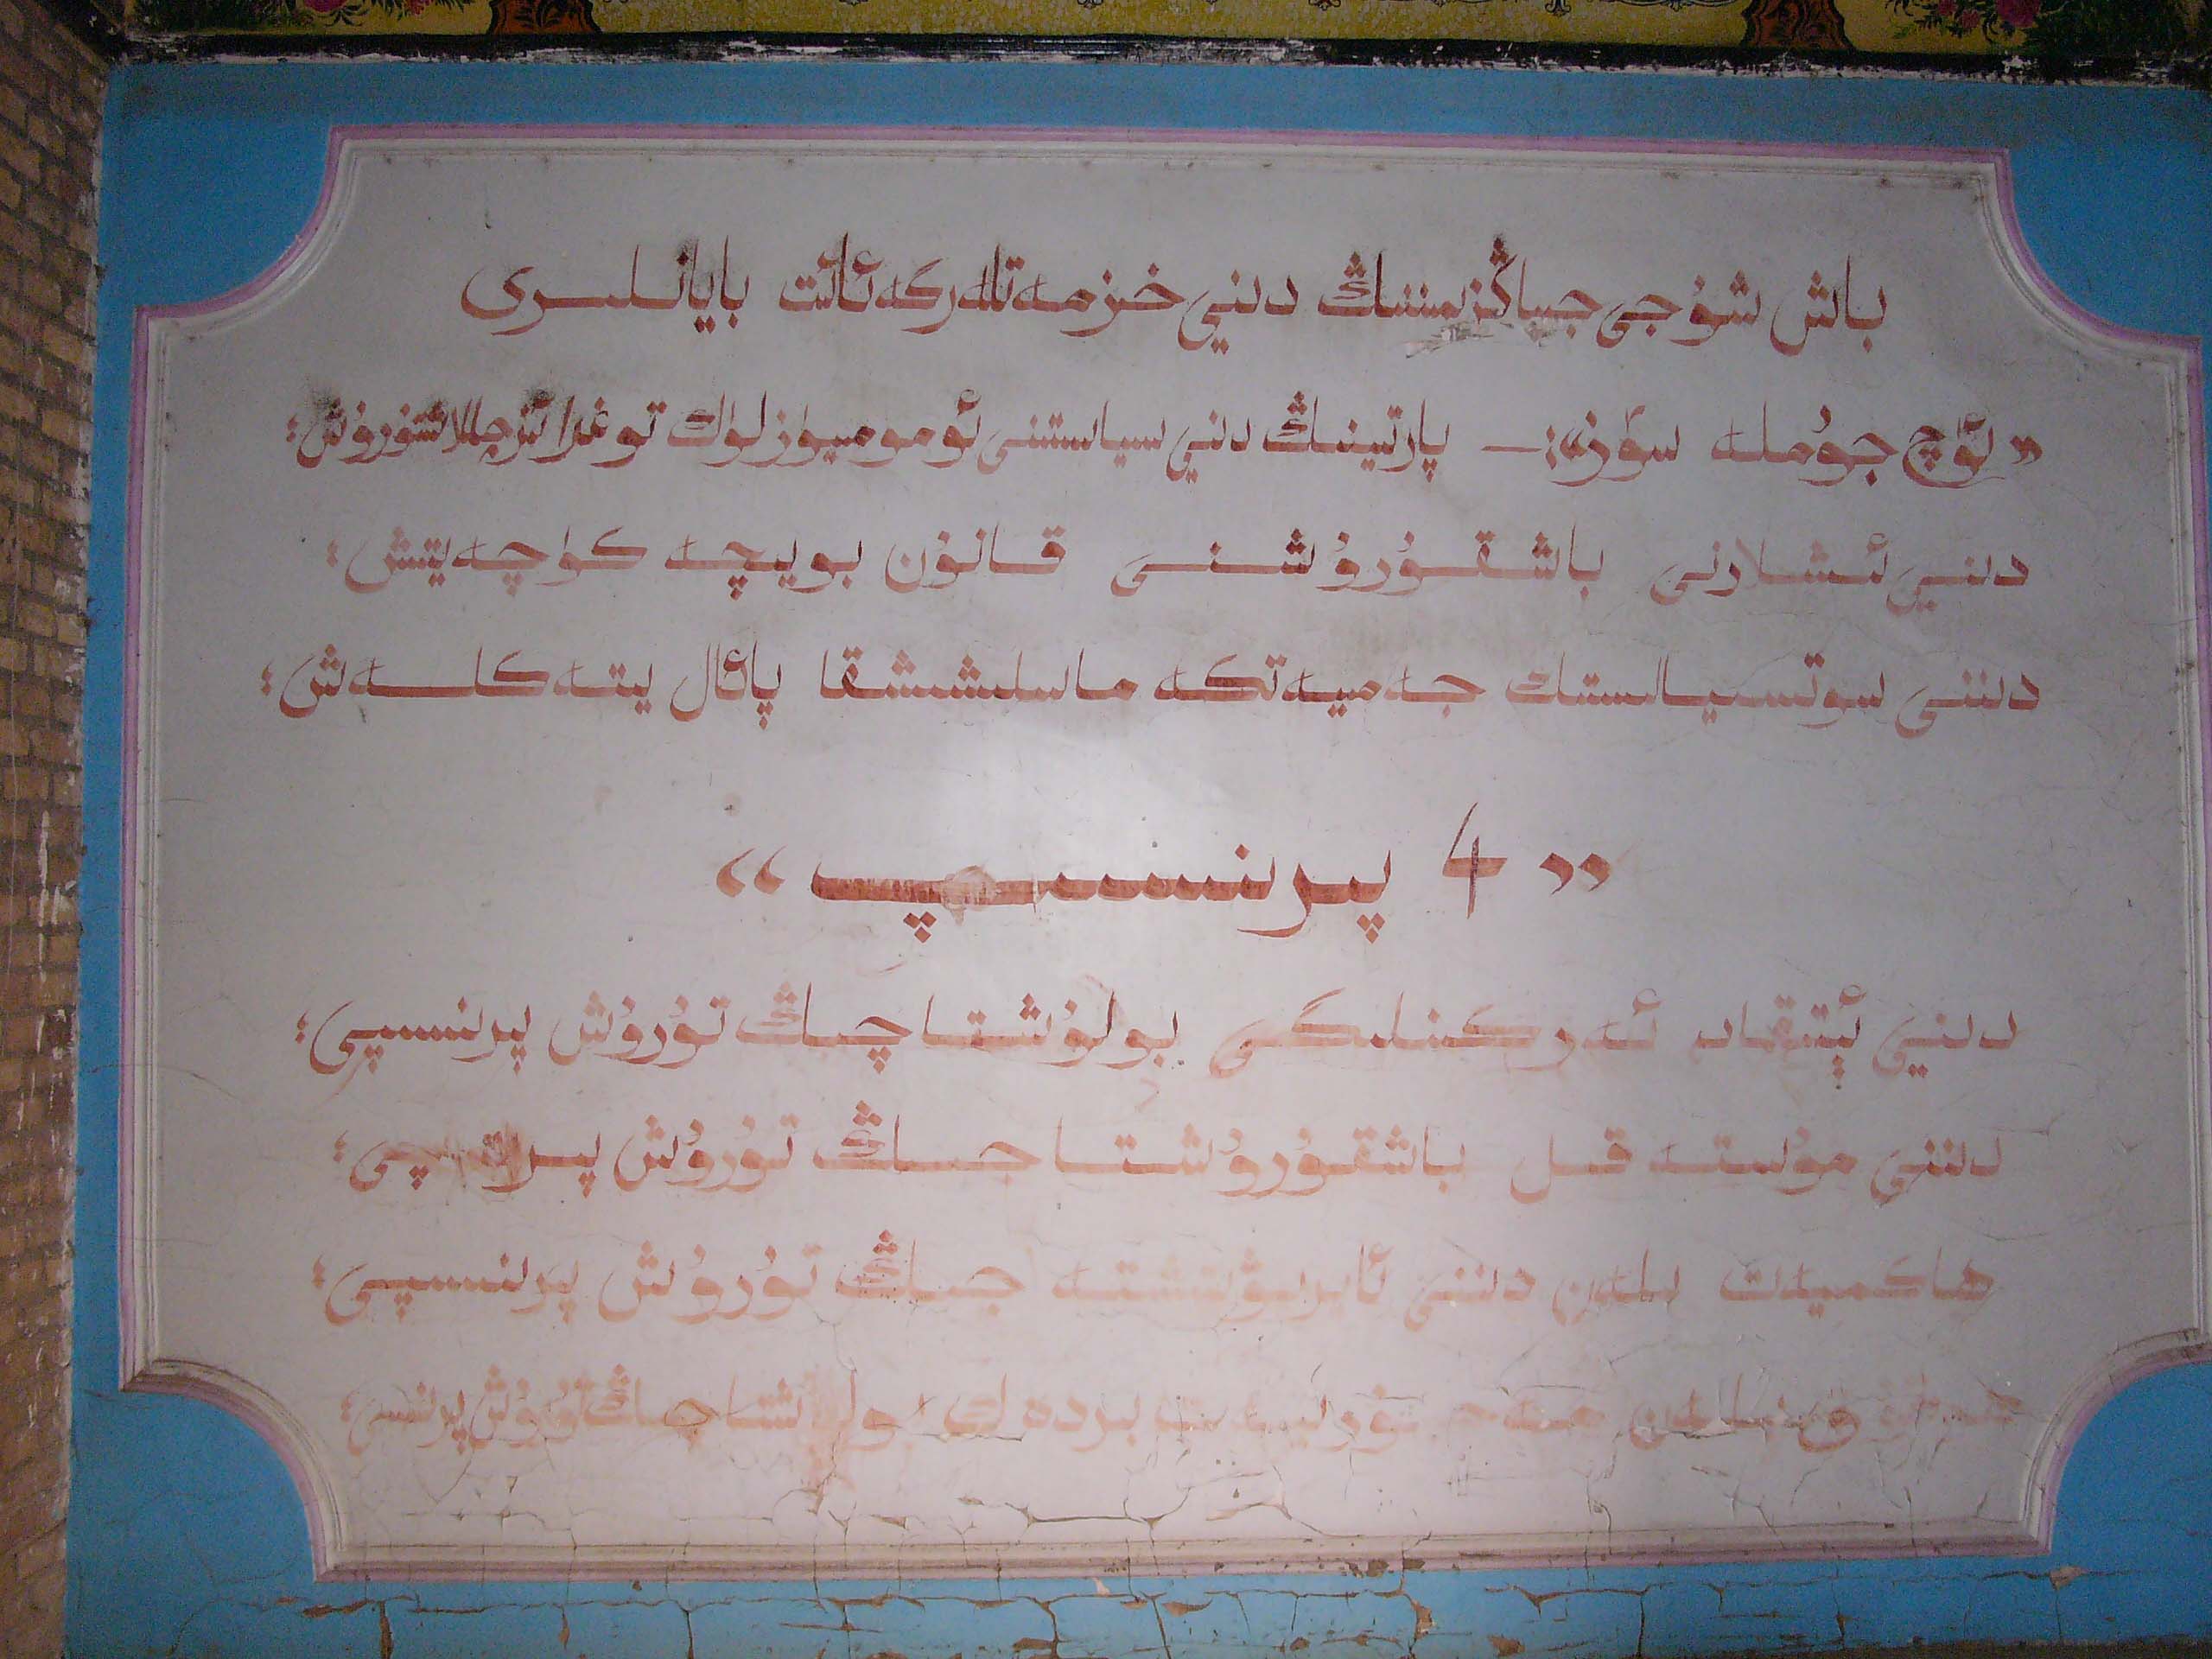 باش شۇجى جياڭزېمىننىڭ دىنىي خىزمەتلەرگە ئائىت بايانلىرى
« ئۈچ جۈملە سۆز»:— پارتىيىنىڭ دىنىي سىياسىتىنى ئومومىيۈزلۈك توغرا ئىزچىللاشتۇرۇش؛
دىنىي ئىشلارنى باشقۇرۇشنى قانۇن بويىچە كۈچەيتىش؛
دىننى سوتسىيالىستىك جەمىيەتكە ماسلىشىشقا پائال يىتەكلەش؛
« 4 پرىنسىپ »
دىنىي ئېتىقاد ئەركىنلىگى بولۇشتا چىڭ تۇرۇش پرىنسىپى؛
دىننى مۇستەقىل باشقۇرۇشتا چىڭ تۇرۇش
ھاكىمىيەت بىلەن دىننى ئايرىۋېتىشتە چىڭ تۇرۇش پرىنسىپى؛
بىلەن بىردەك چىڭ تۇرۇش پرىنسىپى؛